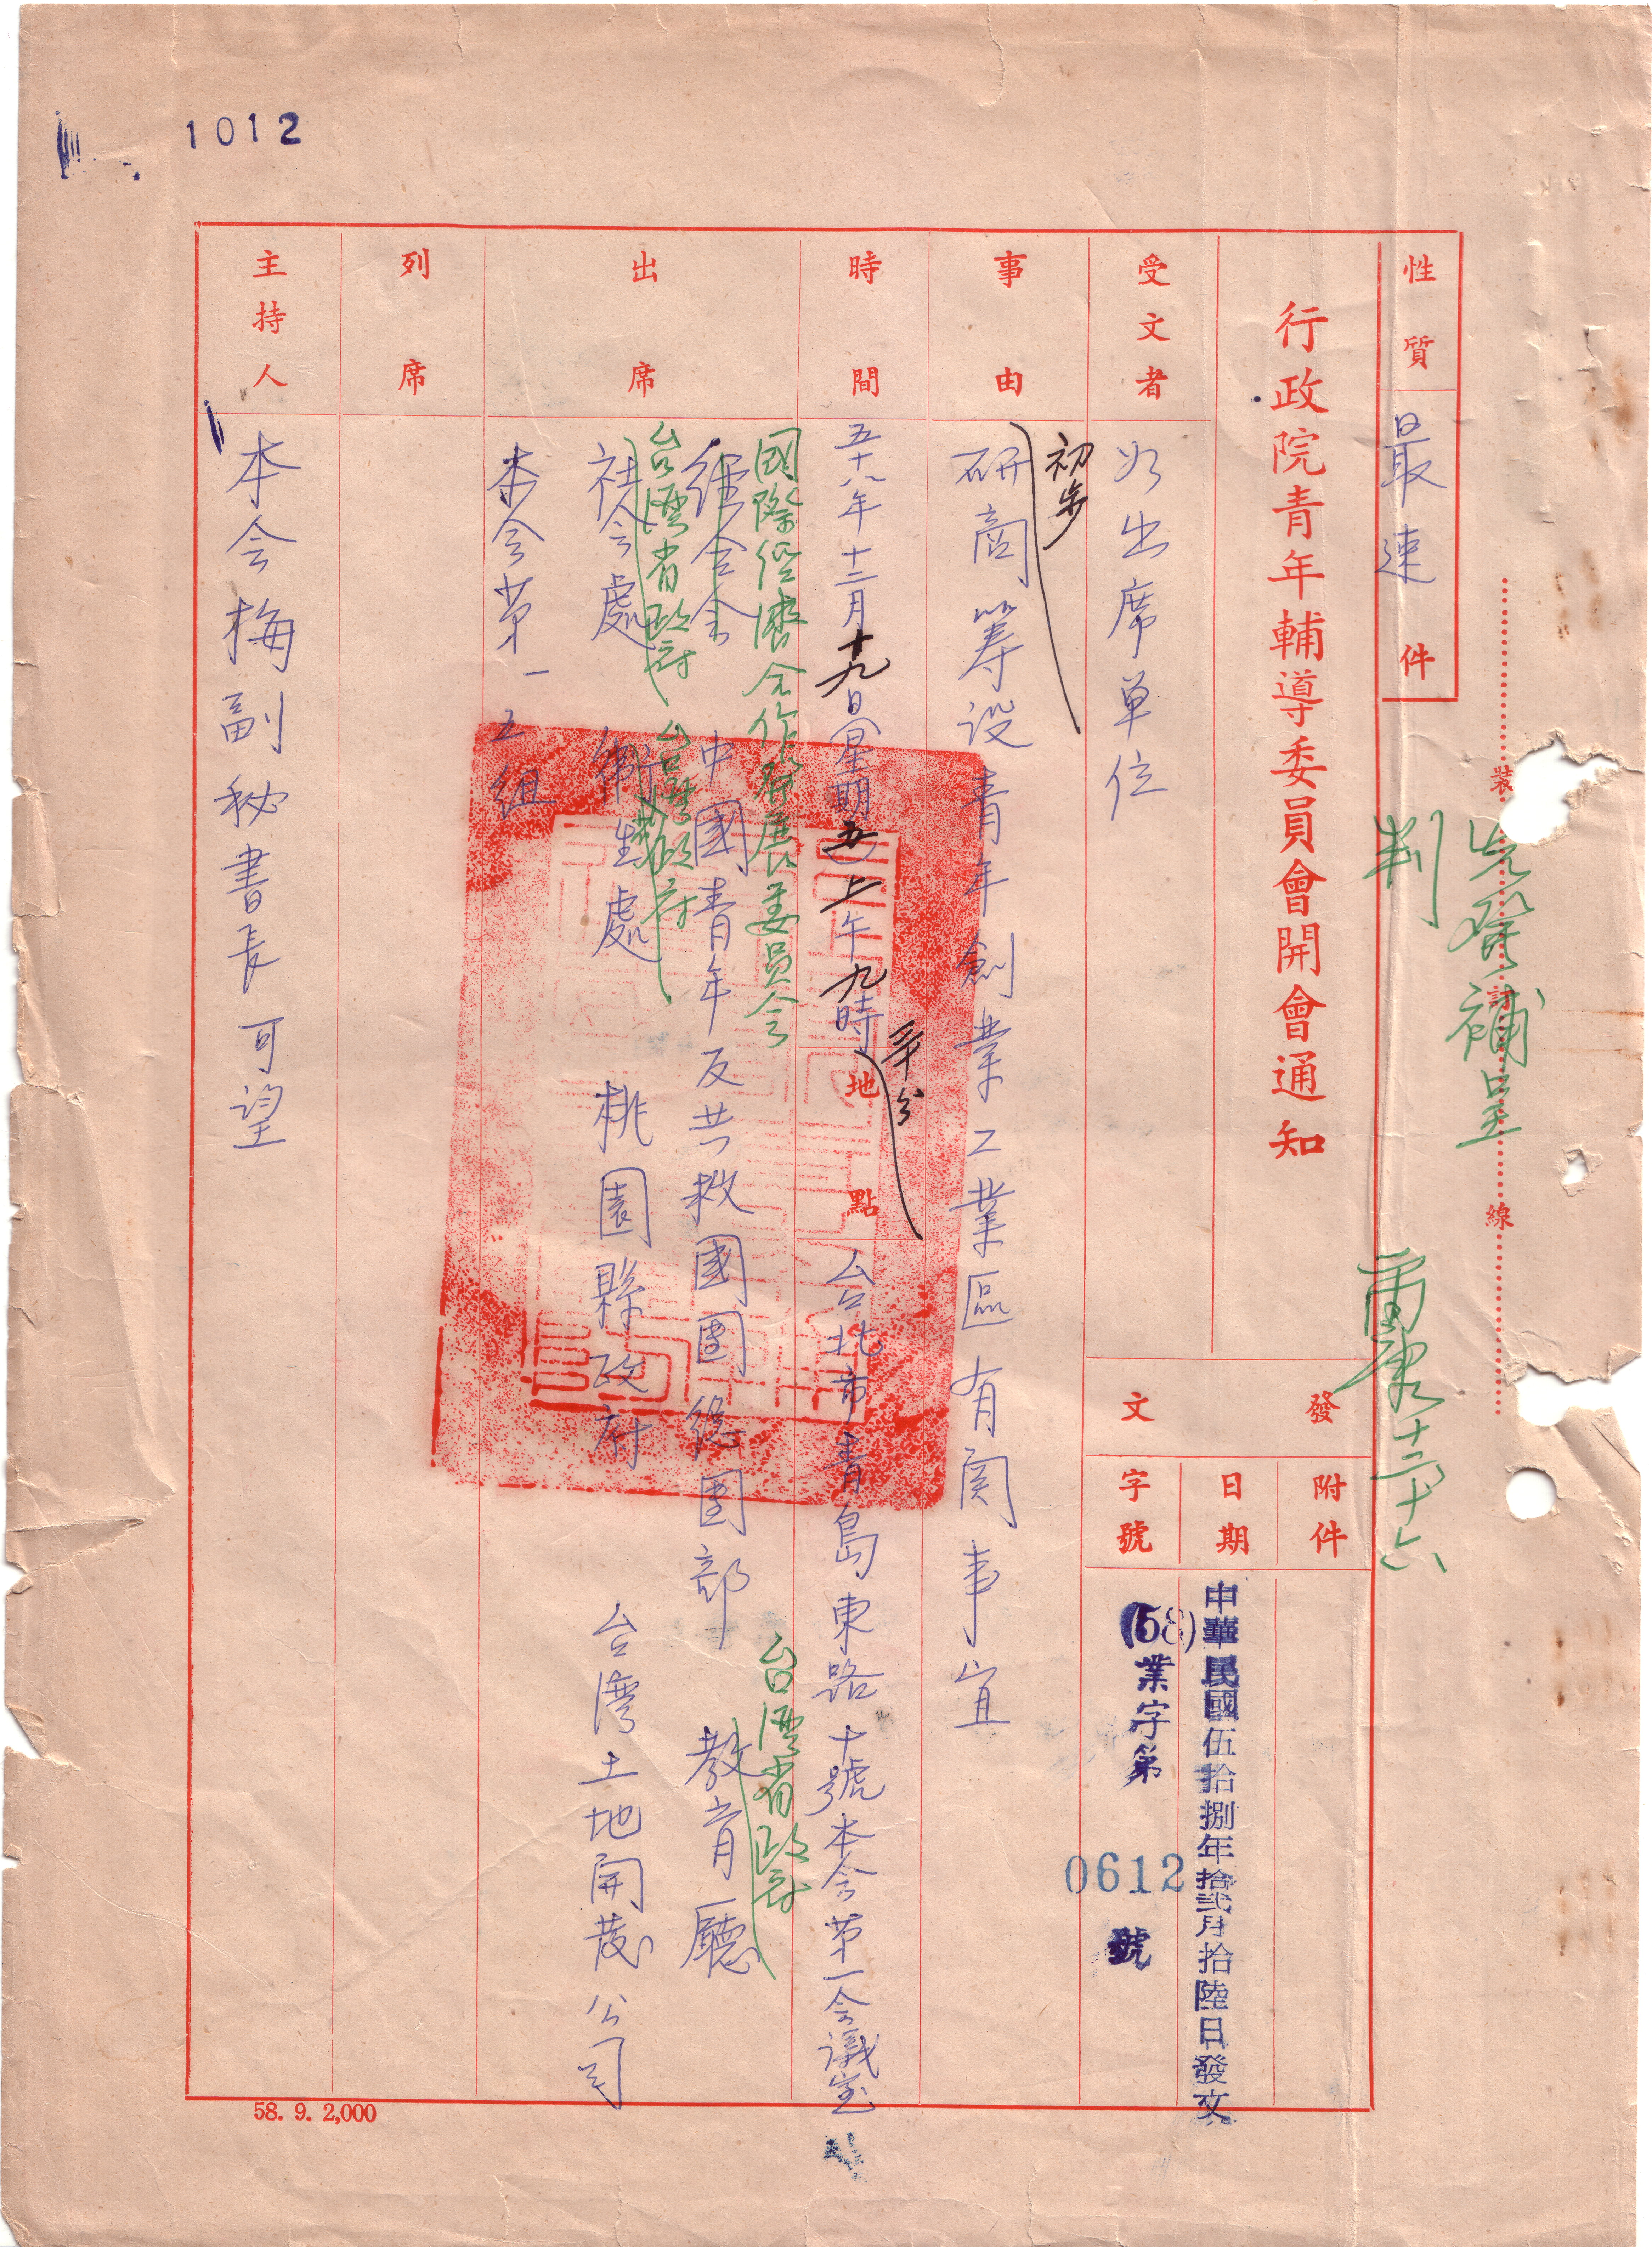 1012
性質 最速件
裝 訂 線
先發補呈
判
十二十六
行政院青年輔導委員會開會通知
受文者 如出席單位
發文
附件
日期 中華民國伍拾捌年拾貳月拾陸日發文
字號 (58)業字第0612號
事由 初步研商籌設青年創業工業區有関事宜
時間 五十八年十二月十九日(星期五)上午九時卅分
地點 台北市青島東路十號本会第一会議室
出席
國際經濟合作發展委員会
經合会 中國青年反共救國團總團部 台灣省政府教育廳
台灣省政府社会處 台灣省政府衛生處 桃園縣政府 台灣土地開發公司
本会第一 五組
列席
主持人 本会梅副秘書長可望
58. 9. 2,000